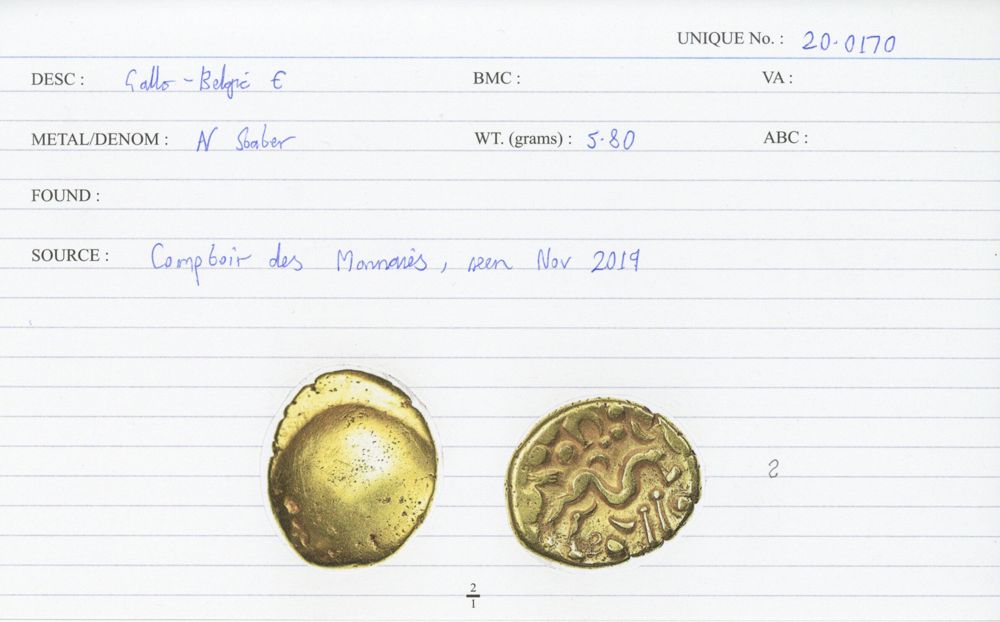 UNIQUE No. : 20.0170
DESC : Gallo-Belgic E BMC : VA :
METAL/DENOM : N Stater WT. (grams) : 5.80 ABC :
FOUND :
SOURCE : Comptoir des Monnaies, seen Nov 2019
2
2
1